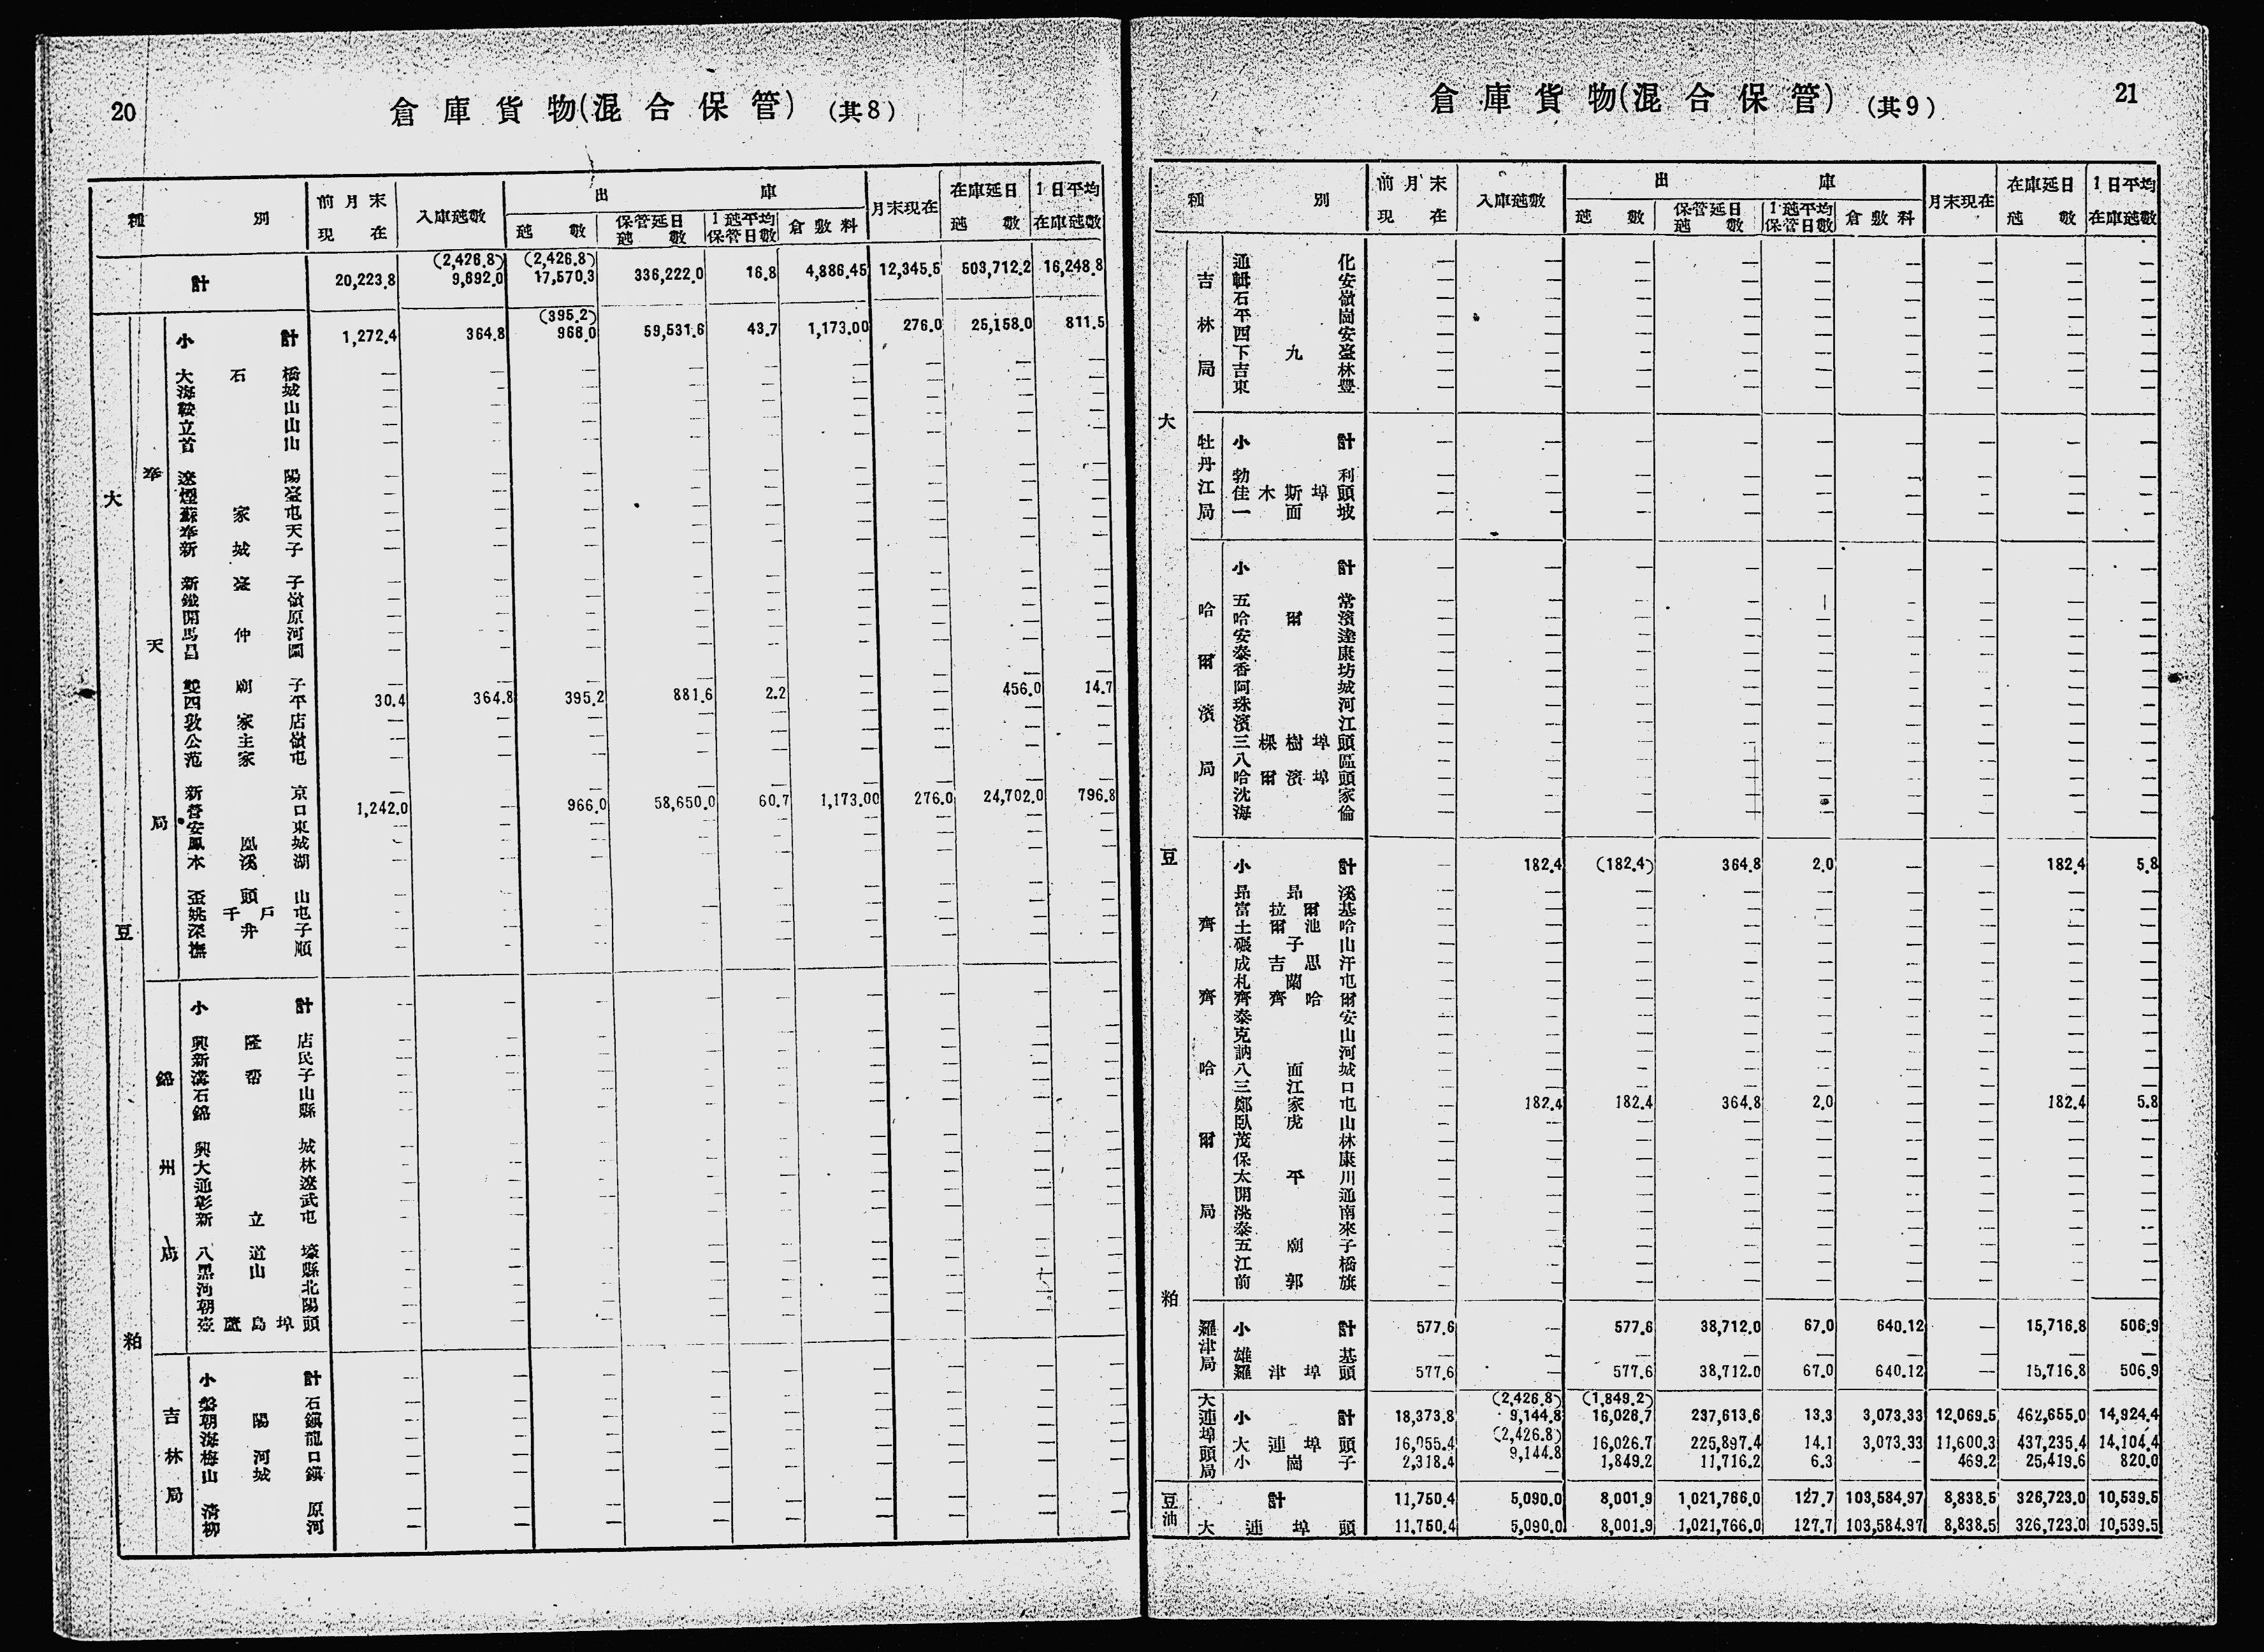 20
倉庫貨物(混合保管) (其8)
種 別 前月末現在 入庫瓲數 出庫 月末現在 在庫延日瓲數 1日平均在庫瓲數
瓲數 保管延日瓲數 1瓲平均保管日數 倉敷料
(2,426.8) (2,426.8)
計 20,223.8 9,692.0 17,570.3 336,222.0 16.8 4,886.45 12,345.5 503,712.2 16,248.8
大豆粕
奉天局
(395.2)
小計 1,272.4 364.8 966.0 59,531.6 43.7 1,173.00 276.0 25,158.0 811.5
大石橋 — — — — — — — — —
海城 — — — — — — — — —
鞍山 — — — — — — — — —
立山 — — — — — — — — —
首山 — — — — — — — — —
遼陽 — — — — — — — — —
煙臺 — — — — — — — — —
蘇家屯 — — — — — — — — —
奉天 — — — — — — — — —
新城子 — — — — — — — — —
新臺子 — — — — — — — — —
鐵嶺 — — — — — — — — —
開原 — — — — — — — — —
馬仲河 — — — — — — — — —
昌圖 — — — — — — — — —
雙廟子 — — — — — — — — —
四平 30.4 364.8 395.2 881.6 2.2 — — 456.0 14.7
郭家店 — — — — — — — — —
公主嶺 — — — — — — — — —
范家屯 — — — — — — — — —
新京 — — — — — — — — —
營口 1,242.0 — 966.0 58,650.0 60.7 1,173.00 276.0 24,702.0 796.8
安東 — — — — — — — — —
鳳凰城 — — — — — — — — —
本溪湖 — — — — — — — — —
歪頭山 — — — — — — — — —
姚千戶屯 — — — — — — — — —
深井子 — — — — — — — — —
撫順 — — — — — — — — —
錦州局
小計 — — — — — — — — —
興隆店 — — — — — — — — —
新民 — — — — — — — — —
溝幫子 — — — — — — — — —
石山 — — — — — — — — —
錦縣 — — — — — — — — —
興城 — — — — — — — — —
大林 — — — — — — — — —
通遼 — — — — — — — — —
彰武 — — — — — — — — —
新立屯 — — — — — — — — —
八道壕 — — — — — — — — —
黑山縣 — — — — — — — — —
河北 — — — — — — — — —
朝陽 — — — — — — — — —
壺蘆島埠頭 — — — — — — — — —
吉林局
小計 — — — — — — — — —
磐石 — — — — — — — — —
朝陽鎭 — — — — — — — — —
海龍 — — — — — — — — —
梅河口 — — — — — — — — —
山城鎭 — — — — — — — — —
淸原 — — — — — — — — —
柳河 — — — — — — — — —
倉庫貨物(混合保管) (其9)
21
種 別 前月末現在 入庫瓲數 出庫 月末現在 在庫延日瓲數 1日平均在庫瓲數
瓲數 保管延日瓲數 1瓲平均保管日數 倉敷料
大豆粕
吉林局
通化 — — — — — — — — —
輯安 — — — — — — — — —
石嶺 — — — — — — — — —
平崗 — — — — — — — — —
西安 — — — — — — — — —
下九臺 — — — — — — — — —
吉林 — — — — — — — — —
東豐 — — — — — — — — —
牡丹江局
小計 — — — — — — — — —
勃利 — — — — — — — — —
佳木斯埠頭 — — — — — — — — —
一面坡 — — — — — — — — —
哈爾濱局
小計 — — — — — — — — —
五常 — — — — — — — — —
哈爾濱 — — — — — — — — —
安達 — — — — — — — — —
泰康 — — — — — — — — —
香坊 — — — — — — — — —
阿城 — — — — — — — — —
珠河 — — — — — — — — —
濱江 — — — — — — — — —
三棵樹埠頭 — — — — — — — — —
八區 — — — — — — — — —
哈爾濱埠頭 — — — — — — — — —
沈家 — — — — — — — — —
海倫 — — — — — — — — —
齊齊哈爾局
小計 — 182.4 (182.4) 364.8 2.0 — — 182.4 5.8
昂昂溪 — — — — — — — — —
富拉爾基 — — — — — — — — —
土爾池哈 — — — — — — — — —
碾子山 — — — — — — — — —
成吉思汗 — — — — — — — — —
札蘭屯 — — — — — — — — —
齊齊哈爾 — — — — — — — — —
泰安 — — — — — — — — —
克山 — — — — — — — — —
訥河 — — — — — — — — —
八面城 — — — — — — — — —
三江口 — — — — — — — — —
鄭家屯 — 182.4 182.4 364.8 2.0 — — 182.4 5.8
臥虎山 — — — — — — — — —
茂林 — — — — — — — — —
保康 — — — — — — — — —
太平川 — — — — — — — — —
開通 — — — — — — — — —
洮南 — — — — — — — — —
泰來 — — — — — — — — —
五廟子 — — — — — — — — —
江橋 — — — — — — — — —
前郭旗 — — — — — — — — —
羅津局
小計 577.6 — 577.6 38,712.0 67.0 640.12 — 15,716.8 506.9
雄基 — — — — — — — — —
羅津埠頭 577.6 — 577.6 38,712.0 67.0 640.12 — 15,716.8 506.9
大連埠頭局
(2,426.8) (1,849.2)
小計 18,373.8 9,144.8 16,026.7 237,613.6 13.3 3,073.33 12,069.5 462,655.0 14,924.4
(2,426.8)
大連埠頭 16,055.4 9,144.8 16,026.7 225,897.4 14.1 3,073.33 11,600.3 437,235.4 14,104.4
小崗子 2,318.4 — 1,849.2 11,716.2 6.3 — 469.2 25,419.6 820.0
豆油
計 11,750.4 5,090.0 8,001.9 1,021,766.0 127.7 103,584.97 8,838.5 326,723.0 10,539.5
大連埠頭 11,750.4 5,090.0 8,001.9 1,021,766.0 127.7 103,584.97 8,838.5 326,723.0 10,539.5